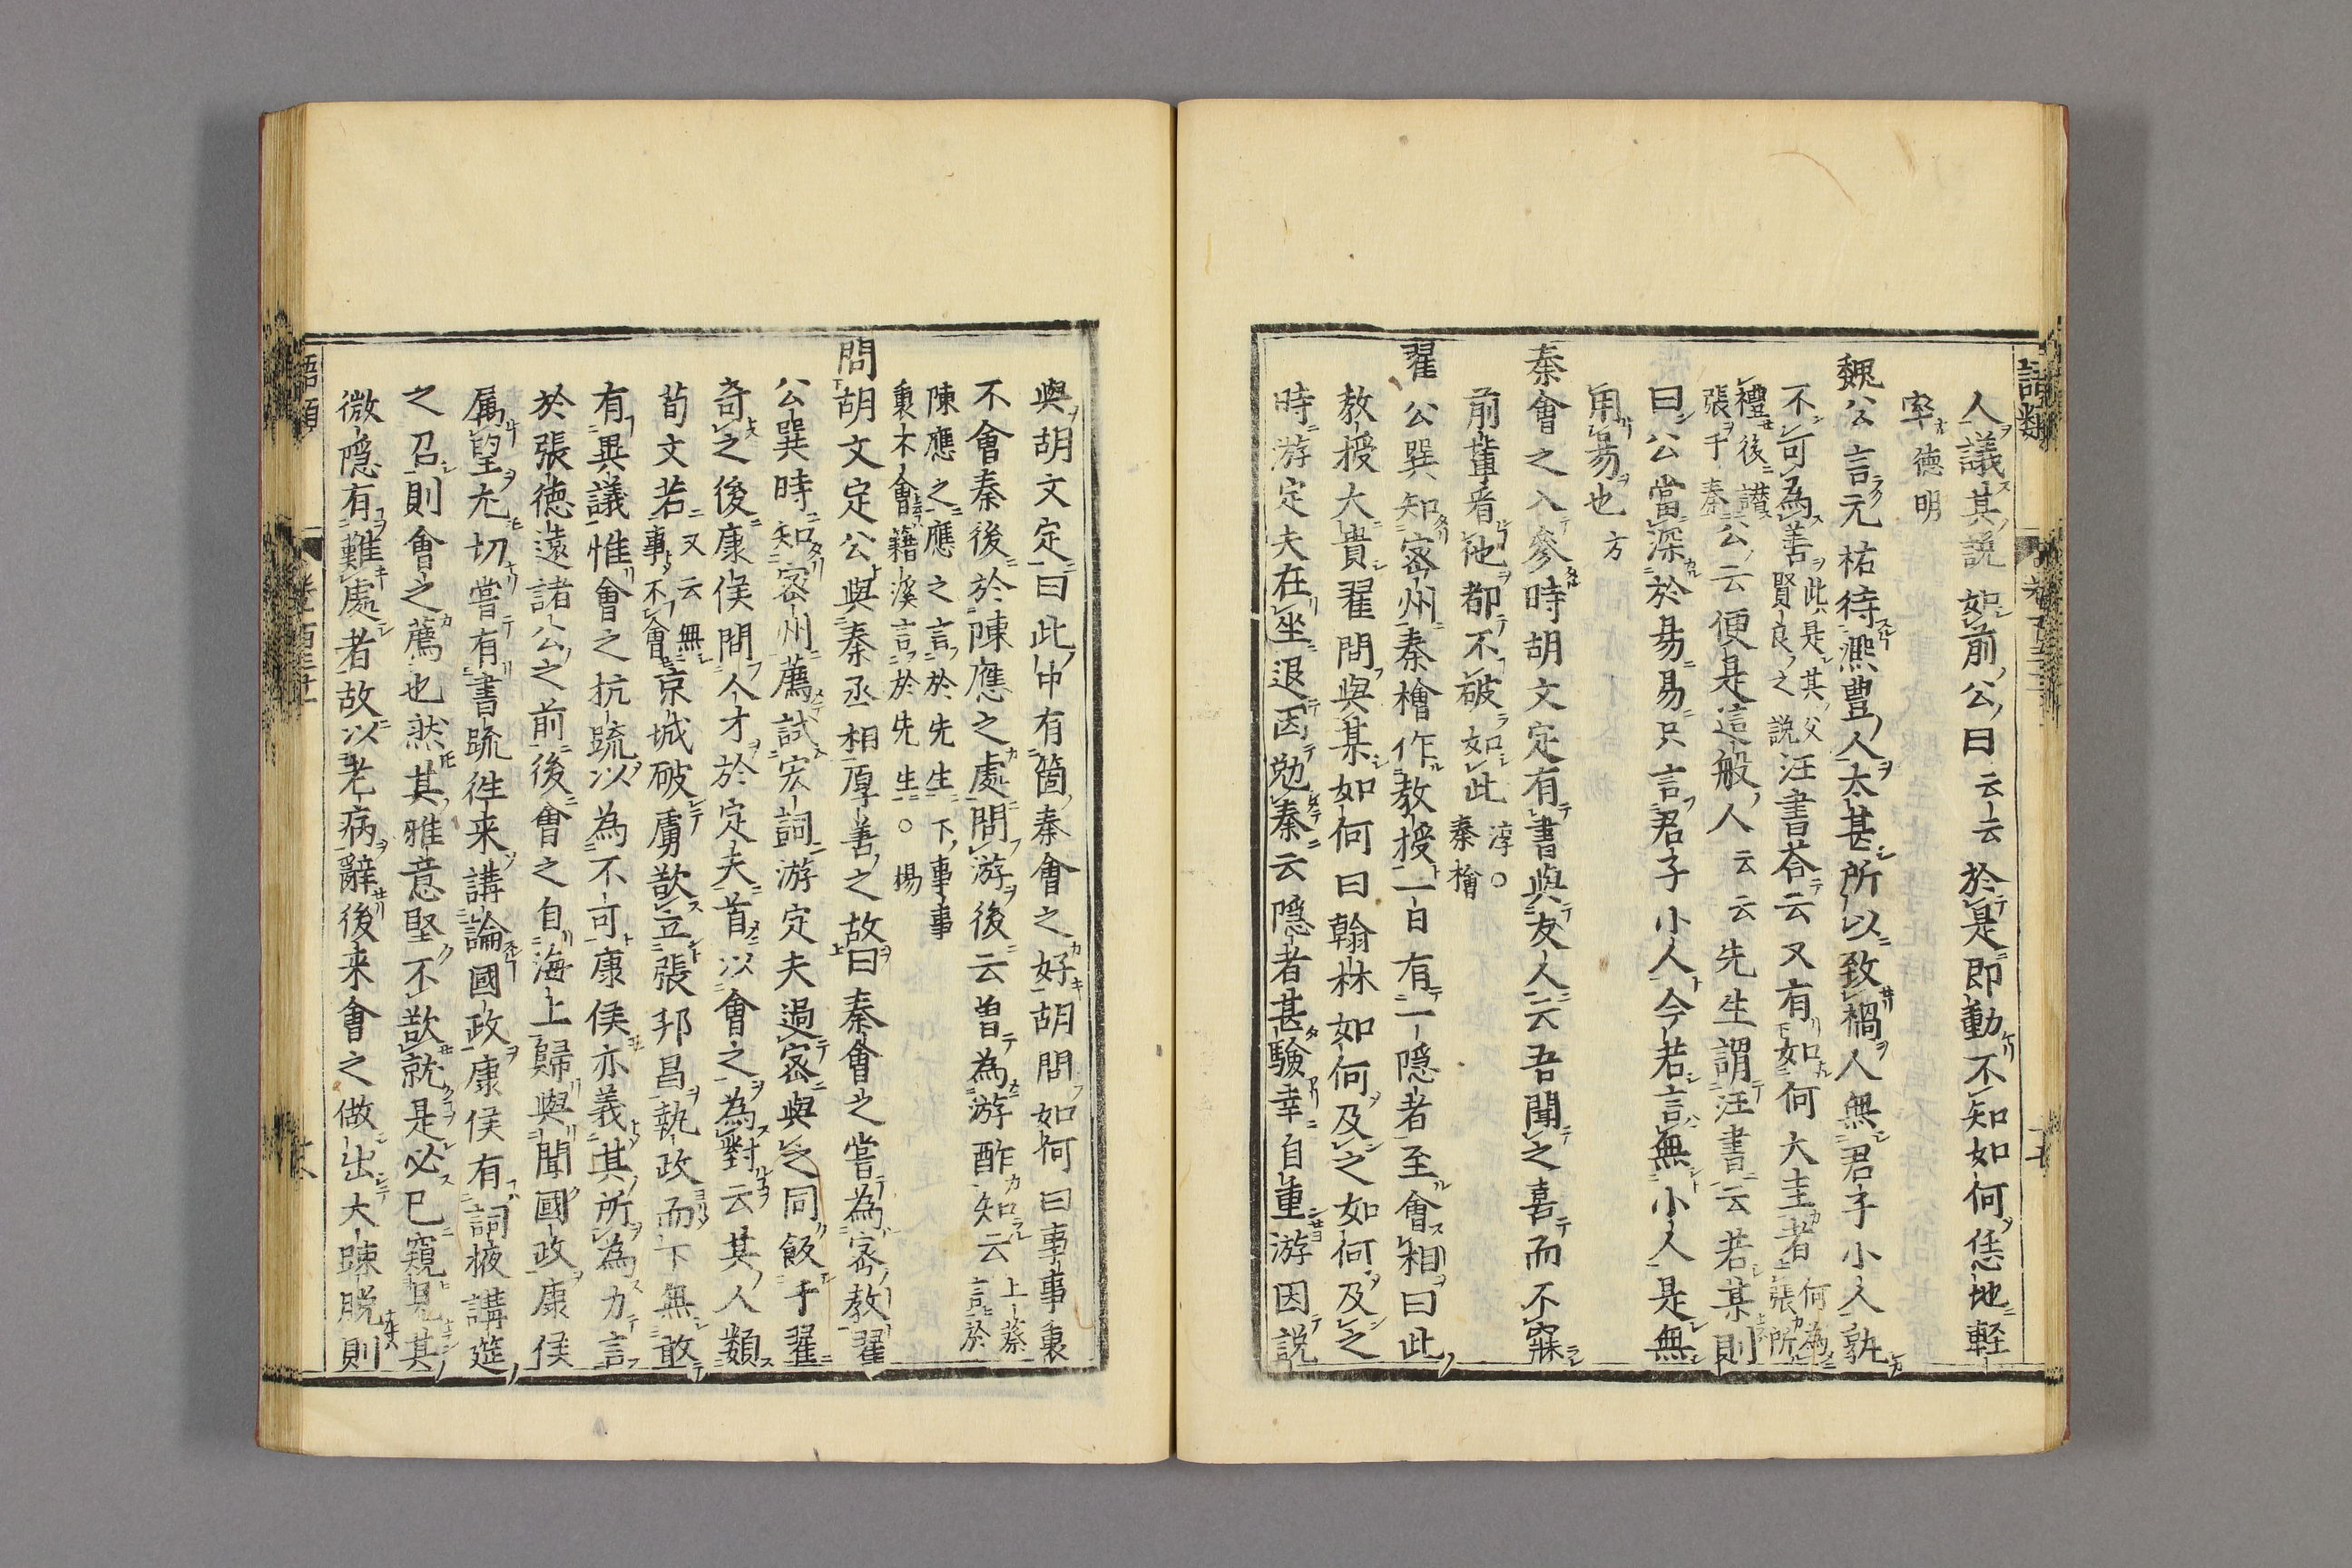 人議其説如前公曰云云於是即動不知如何恁地軽
率德明
魏公言元祐待熈豊人太甚所以致禍人無君子小人孰
不可為善此是其父賢良之説汪書荅云又有如何大圭者何為張所
禮後讃張于秦公云便是這般人云云先生謂汪書云若某則
曰公當深於易易只言君子小人今若言無小人是無
用易也方
秦會之入參時胡文定有書與友人云吾聞之喜而不寐
前輩看他都不破如此淳○秦檜
翟公巽知宻州秦檜作教授一日有一隠者至會相曰此
教授大貴翟問與某如何曰翰林如何及之如何及之
時游定夫在坐退因勉秦云隠者甚驗幸自重游因説
與胡文定曰此中有箇秦會之好胡問如何曰事事裏
不會秦後於陳應之處問游後云曽為游酢知云上蔡言於
陳應之應之言於先生下事事
裏木會籍溪言於先生○楊
問胡文定公與秦丞相厚善之故曰秦會之嘗為宻教翟
公巽時知宻州薦試宏詞游定夫過宻與之同飯于翟
奇之後康侯問人才於定夫首以會之為對云其人類
荀文若又云無事不會京城破虜欲立張邦昌執政而下無敢
有異議惟會之抗疏以為不可康侯亦義其所為力言
於張德遠諸公之前後會之自海上歸與聞國政康侯
属望尤切嘗有書疏徃来講論國政康侯有詞掖講筵
之召則會之薦也然其雅意堅不欲就是必已窺見其
微隠有難處者故以老病辭後来會之做出大踈脱則